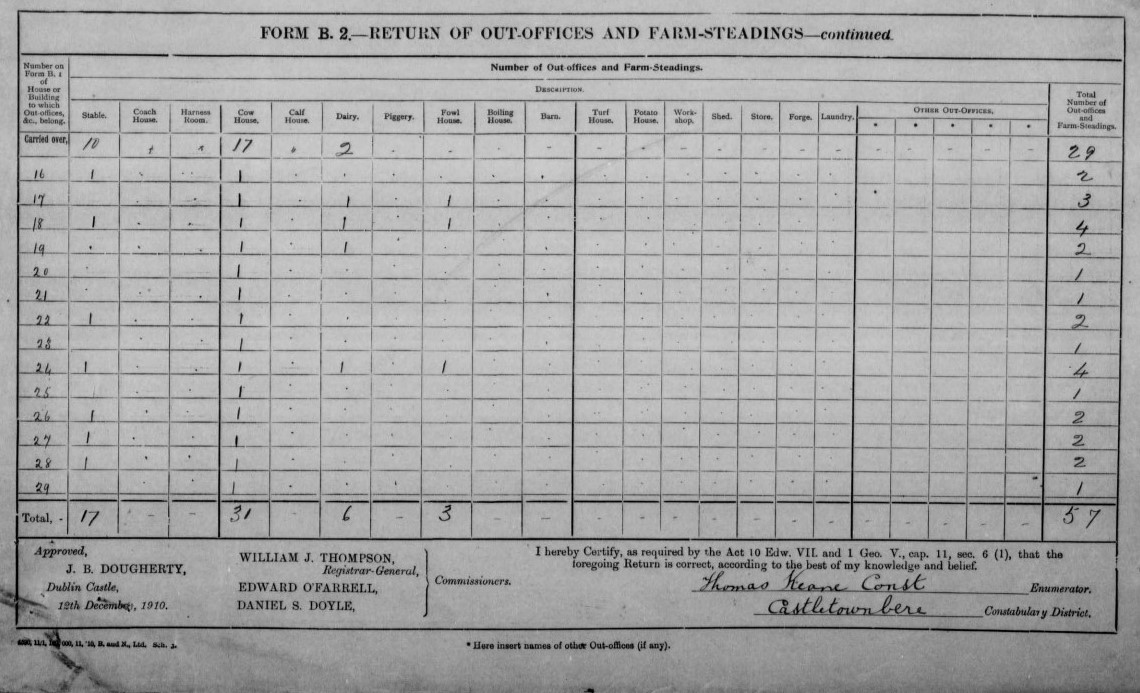 FORM B. 2.—RETURN OF OUT-OFFICES AND FARM-STEADINGS—continued.
Number on Form B. 1 of House or Building to which Out-offices, &c., belong.
Number of Out-offices and Farm-Steadings.
DESCRIPTION.
Stable. Coach House. Harness Room. Cow House. Calf House. Dairy. Piggery. Fowl House. Boiling House. Barn. Turf House. Potato House. Work-shop. Shed. Store. Forge. Laundry. OTHER OUT-OFFICES. * * * * * Total Number of Out-offices and Farm-Steadings.
Carried over, 10 17 2 - - - - - - - - - - - - - - - - 29
16 1 1 2
17 1 1 1 3
18 1 1 1 1 4
19 1 1 2
20 1 1
21 1 1
22 1 1 2
23 1 1
24 1 1 1 1 4
25 1 1
26 1 1 2
27 1 1 2
28 1 1 2
29 1 1
Total, - 17 - - 31 - 6 - 3 - - - - - - - - - - - - - - 57
Approved,
J. B. DOUGHERTY,
Dublin Castle,
12th December, 1910.
WILLIAM J. THOMPSON,
Registrar-General,
EDWARD O'FARRELL,
DANIEL S. DOYLE,
Commissioners.
I hereby Certify, as required by the Act 10 Edw. VII. and 1 Geo. V., cap. 11, sec. 6 (1), that the
foregoing Return is correct, according to the best of my knowledge and belief.
Thomas Keane Const Enumerator.
Castletownbere Constabulary District.
11, '10, B. and N., Ltd. Sch. 3.
* Here insert names of other Out-offices (if any).